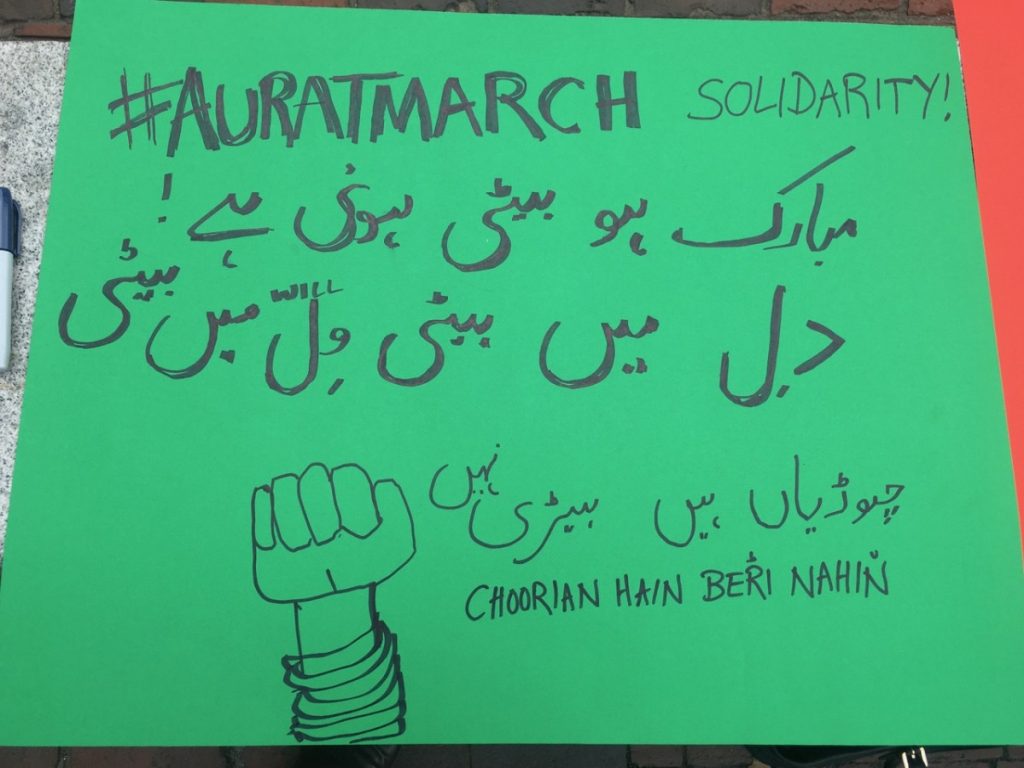 #AURATMARCH SOLIDARITY!
مبارک ہو بیٹی ہوئی ہے!
دل میں بیٹی وِل WILL میں بیٹی
چوڑیاں ہیں بیڑی نہیں
CHOORIAN HAIN BEŘI NAHIÑ